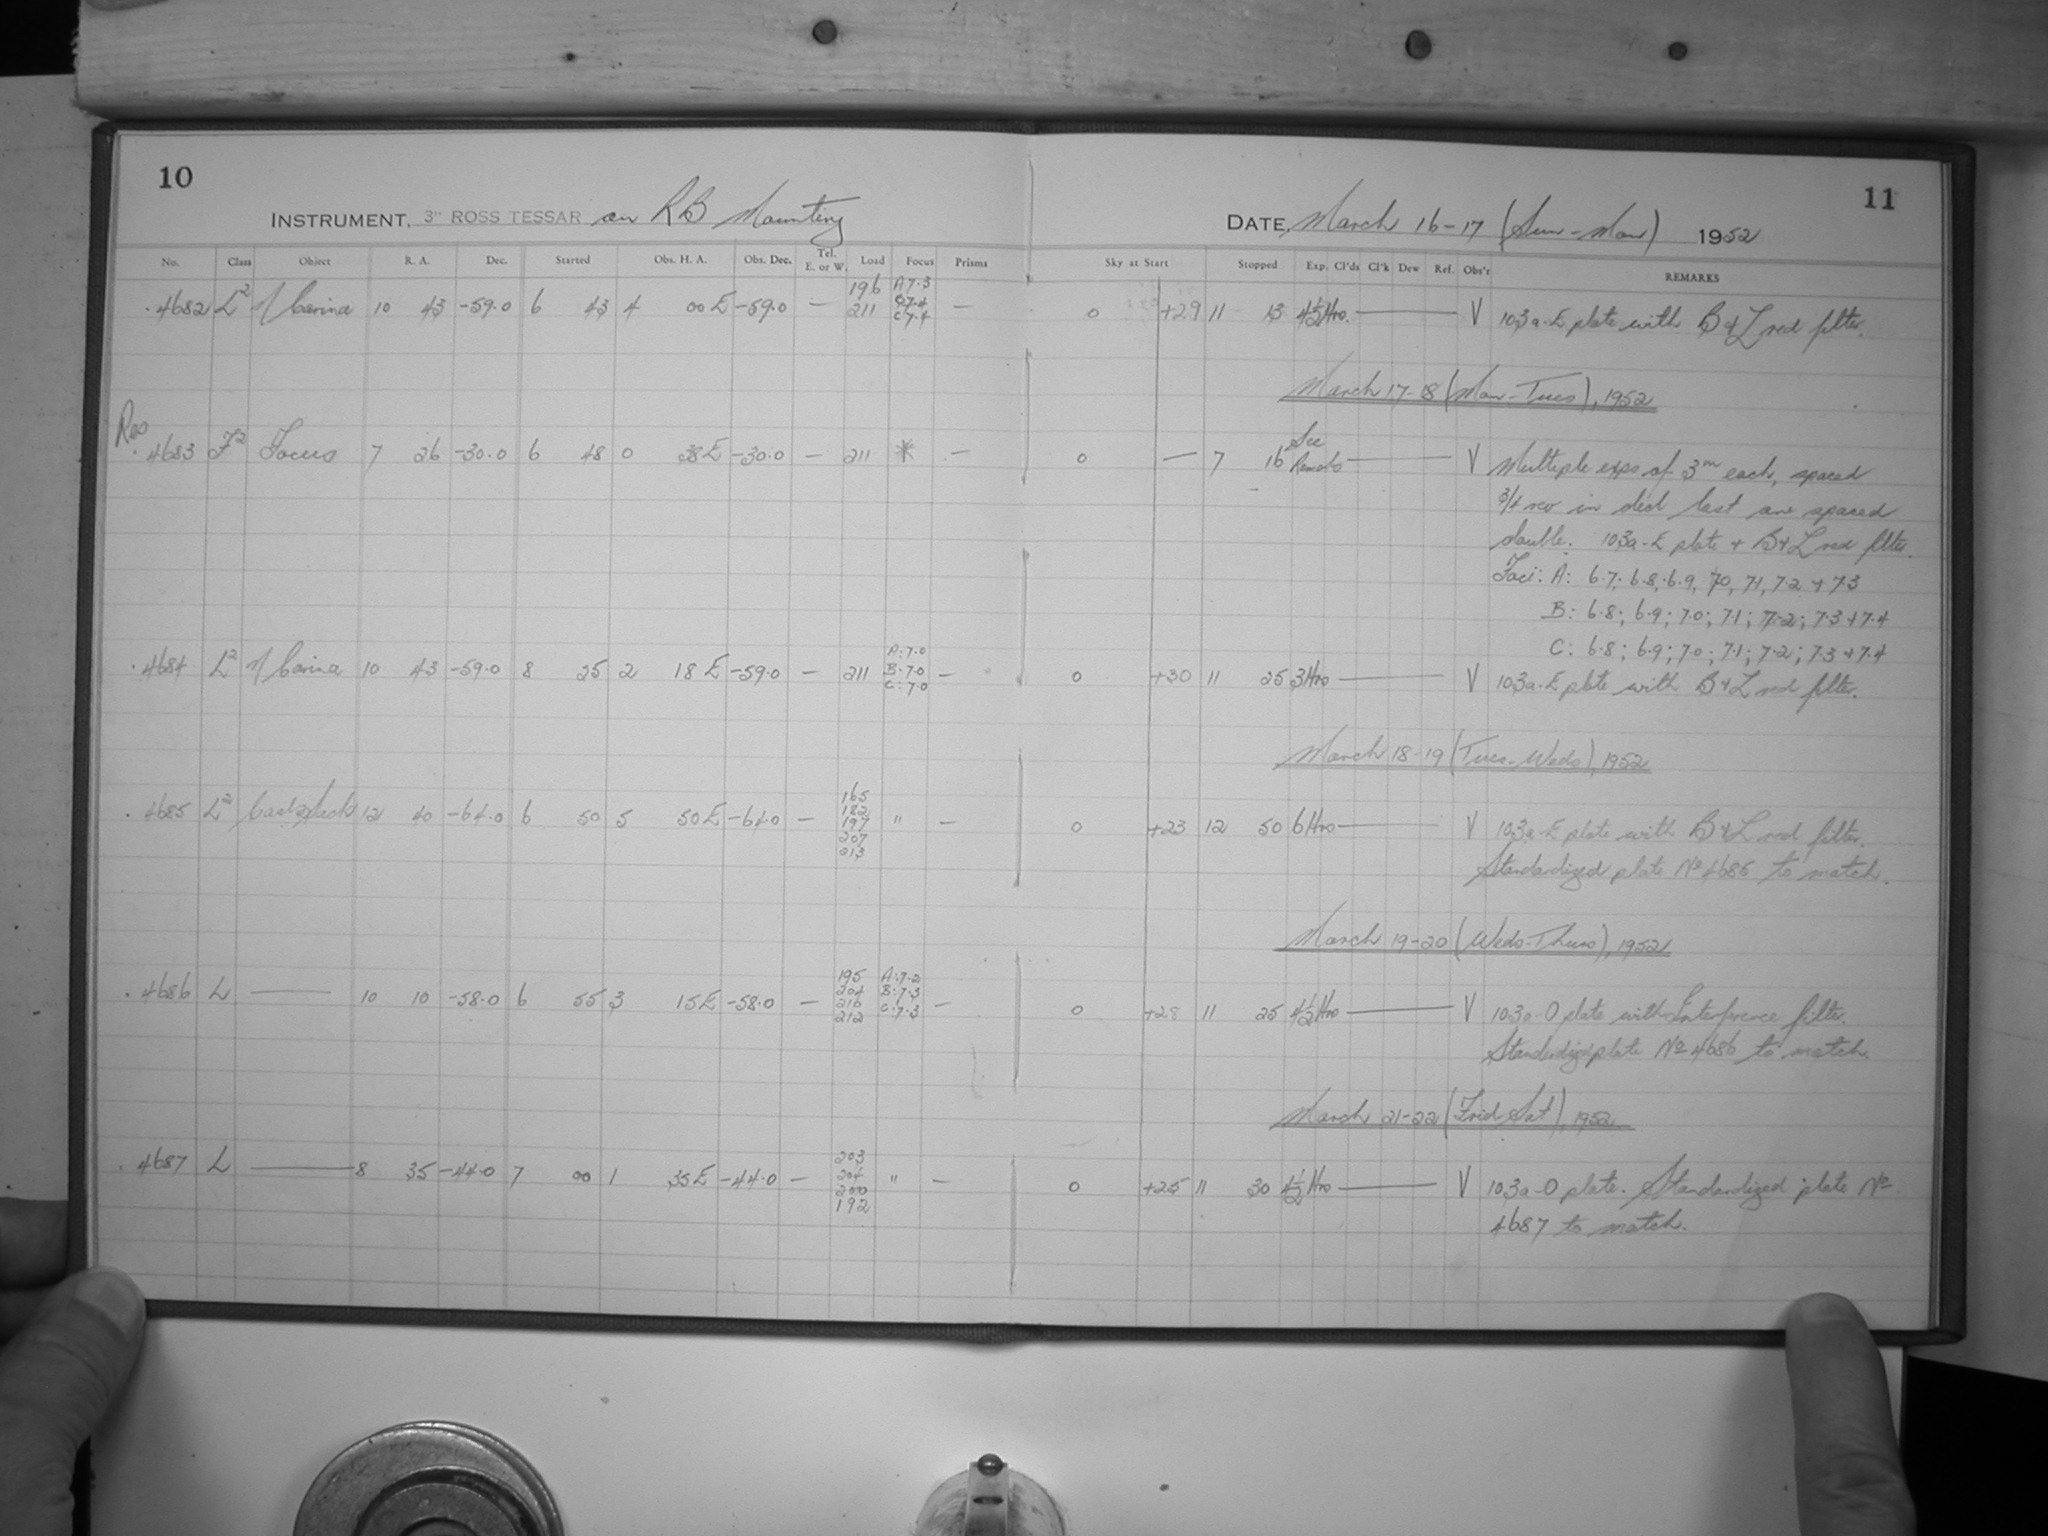 10
INSTRUMENT, 3" ROSS TESSAR on RB Mounting
No. Class Object R. A. Dec. Started Obs. H. A. Obs. Dec. Tel. E. or W. Load Focus Prisms
4682 L2 η Carina 10 43 -59.0 6 43 4 00 E -59.0 — 196 211 A 7.3 B 7.4 C 7.4 —
Res
4683 F2 Focus 7 26 -30.0 6 48 0 38 E -30.0 — 211 * —
4684 L2 η Carina 10 43 -59.0 8 25 2 18 E -59.0 — 211 A: 7.0 B: 7.0 C: 7.0 —
4685 L2 Coalsack 12 40 -64.0 6 50 5 50 E -64.0 — 165 182 197 207 213 " —
4686 L — 10 10 -58.0 6 55 3 15 E -58.0 — 195 204 210 212 A: 7.2 B: 7.3 C: 7.3 —
4687 L — 8 35 -44.0 7 00 1 35 E -44.0 — 203 204 200 192 " —
11
DATE, March 16-17 (Sun-Mon) 1952
Sky at Start Stopped Exp. Cl'ds Cl'k Dew Ref. Obs'r REMARKS
0 +29 11 13 4½ Hrs. — V 103a-E plate with B & L red filter.
March 17-18 (Mon-Tues), 1952
0 — 7 16 See Remarks — V Multiple exps of 3m each, spaced
3/4 rev in decl last one spaced
double. 103a-E plate + B & L red filter.
Foci: A: 6.7, 6.8, 6.9, 7.0, 7.1, 7.2 + 7.3
B: 6.8; 6.9; 7.0; 7.1; 7.2; 7.3 + 7.4
C: 6.8; 6.9; 7.0; 7.1; 7.2; 7.3 + 7.4
0 +30 11 25 3 Hrs — V 103a-E plate with B & L red filter.
March 18-19 (Tues-Weds), 1952
0 +23 12 50 6 Hrs — V 103a-E plate with B & L red filter.
Standardized plate No 4685 to match.
March 19-20 (Weds-Thurs), 1952
0 +28 11 25 4½ Hrs — V 103a-O plate with Interference filter.
Standardized plate No 4686 to match.
March 21-22 (Frid Sat), 1952
0 +25 11 30 4½ Hrs — V 103a-O plate. Standardized plate No
4687 to match.